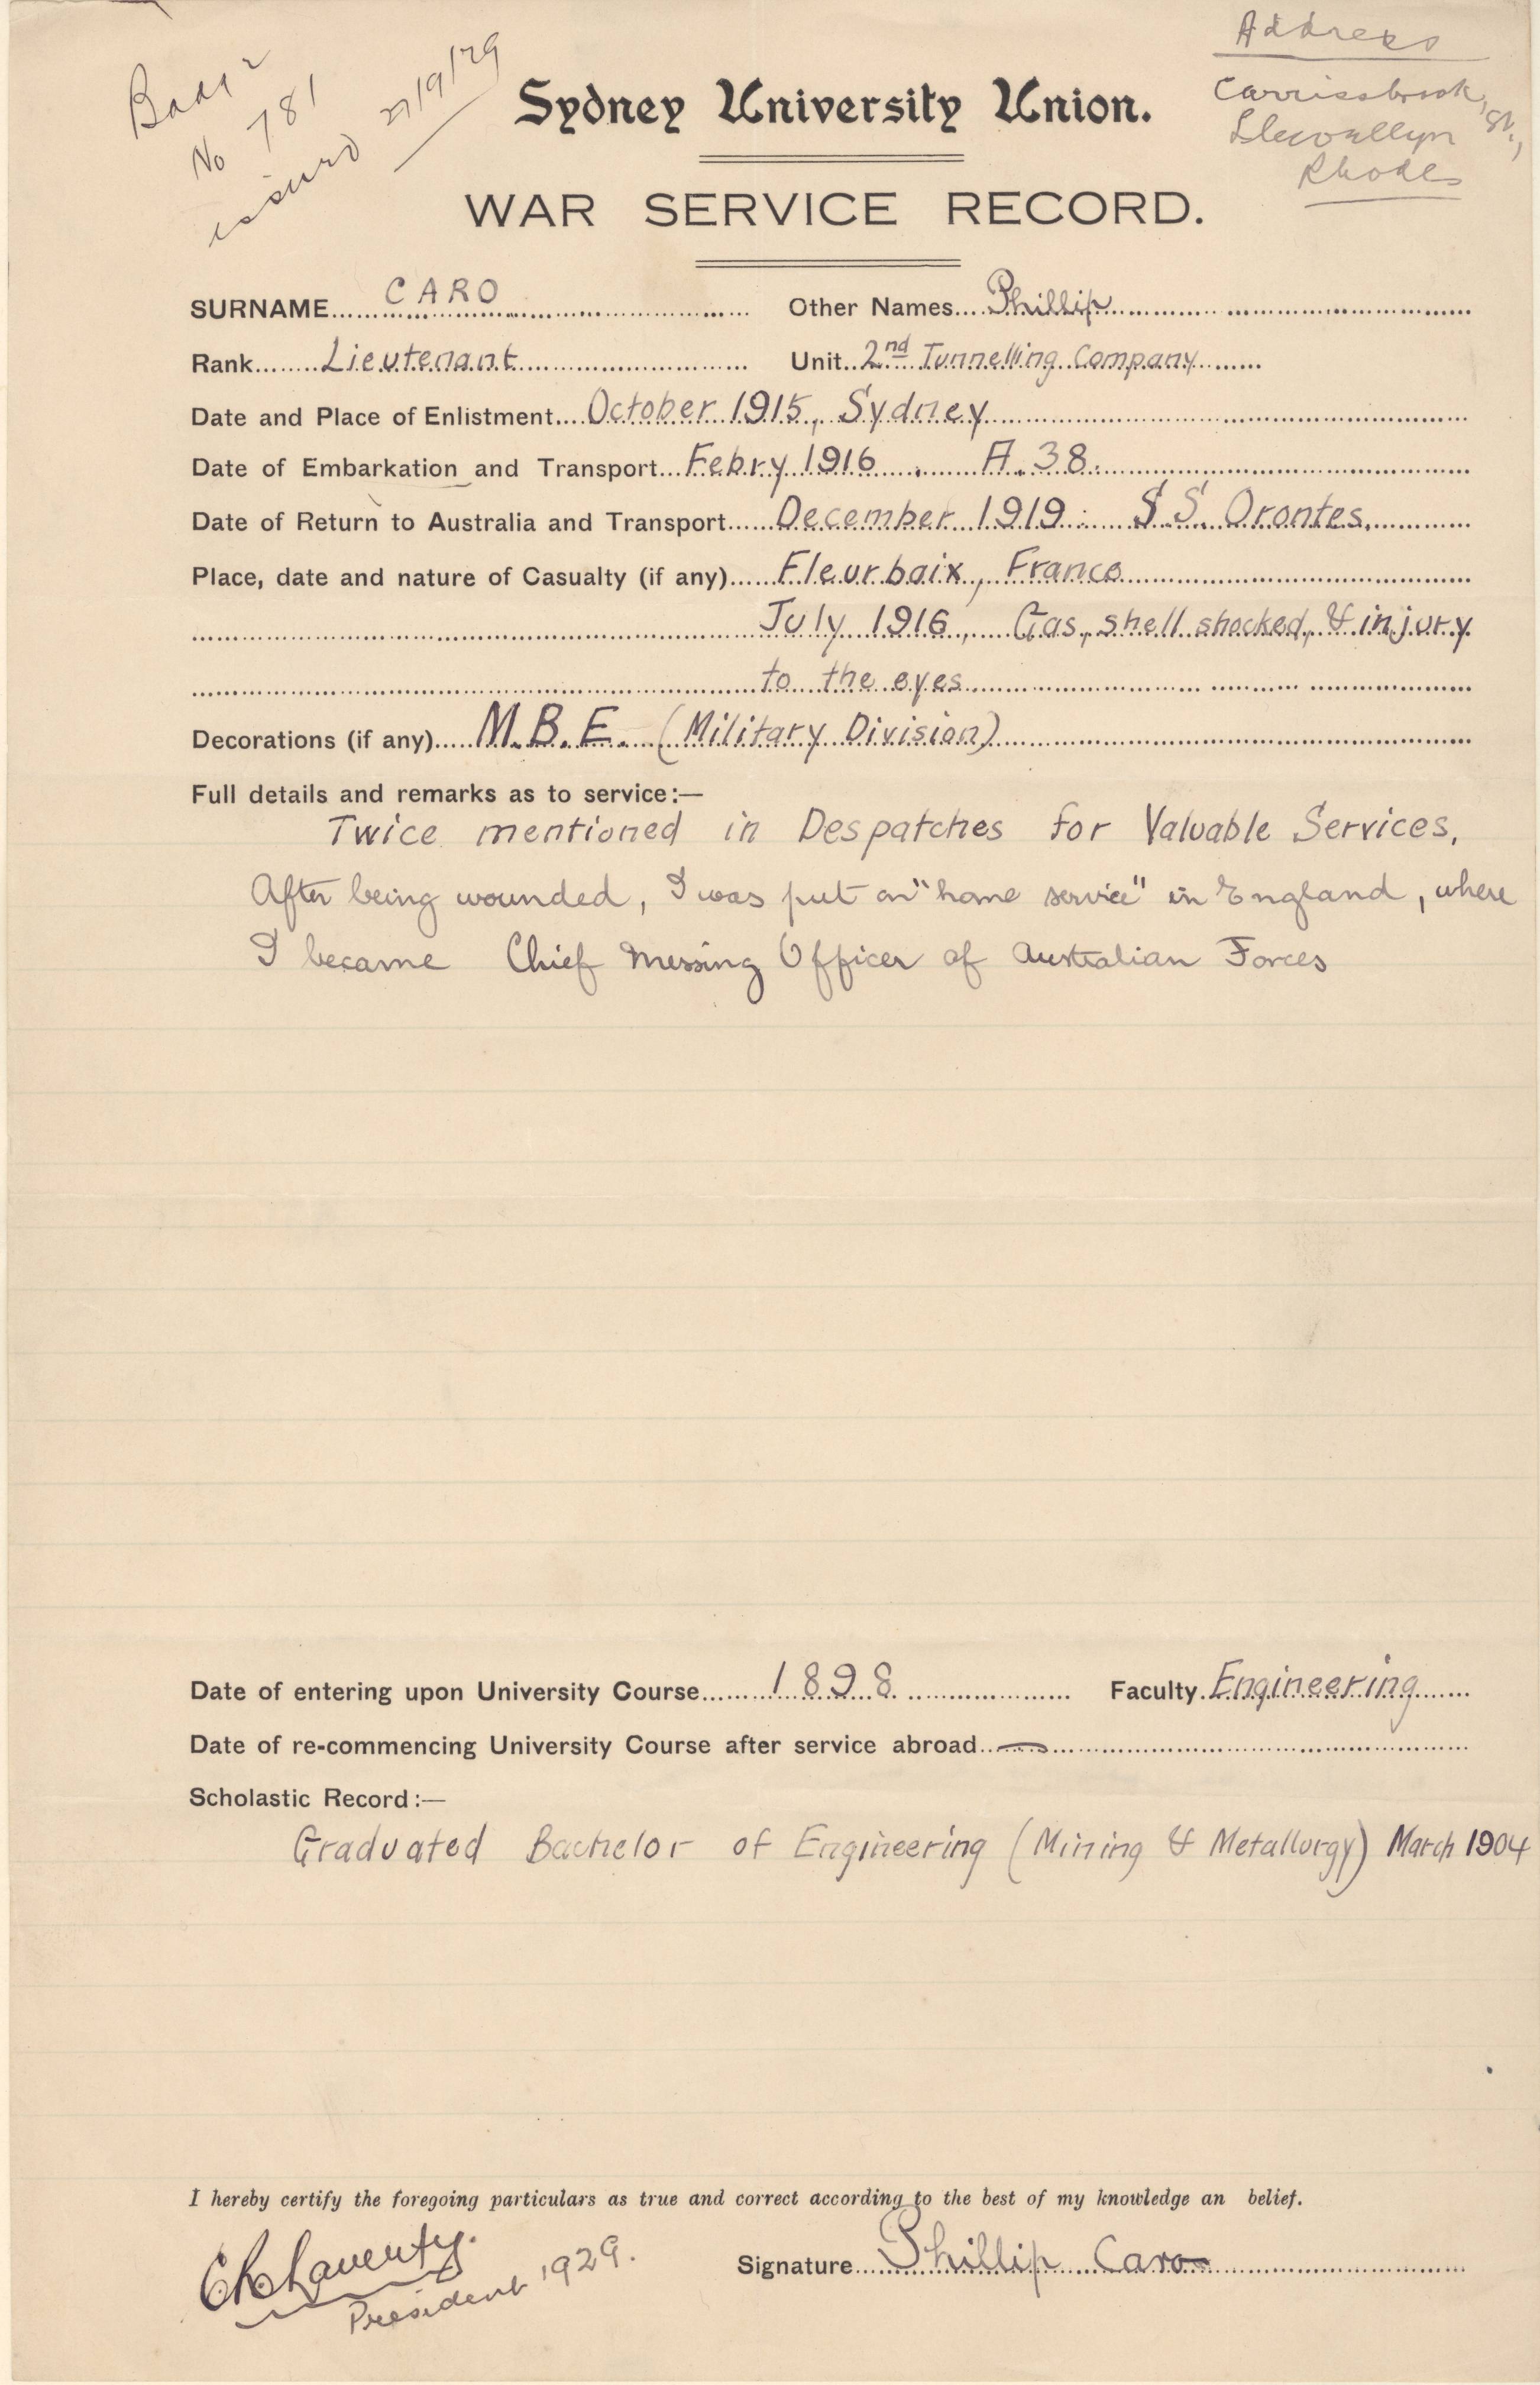 Badge
No 781
issued 27/9/29
Address
Carrissbrook,
Llewellyn St.,
Rhodes
Sydney University Union.
WAR SERVICE RECORD.
SURNAME CARO Other Names Phillip
Rank Lieutenant Unit 2nd Tunnelling Company
Date and Place of Enlistment October 1915, Sydney
Date of Embarkation and Transport Febry 1916. A.38.
Date of Return to Australia and Transport December 1919: S.S. Orontes.
Place, date and nature of Casualty (if any) Fleurbaix, France
July 1916, Gas, shell shocked, & injury
to the eyes
Decorations (if any) M.B.E. (Military Division)
Full details and remarks as to service:—
Twice mentioned in Despatches for Valuable Services.
After being wounded, I was put on "home service" in England, where
I became Chief Messing Officer of Australian Forces
Date of entering upon University Course 1898 Faculty Engineering
Date of re-commencing University Course after service abroad —
Scholastic Record:—
Graduated Bachelor of Engineering (Mining & Metallurgy) March 1904
I hereby certify the foregoing particulars as true and correct according to the best of my knowledge an belief.
Signature Phillip Caro
President 1929.